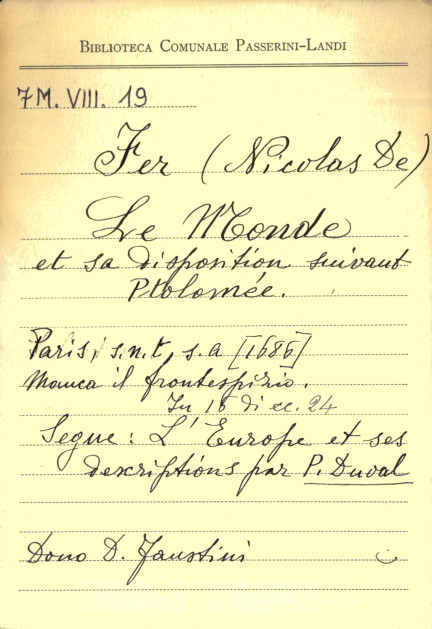 BIBLIOTECA COMUNALE PASSERINI-LANDI
7M. VIII. 19
Fer (Nicolas De)
Le Monde
et sa disposition suivant
Ptolomée.
Paris, s.n.t, s.a [1686]
Manca il frontespizio.
In 16 di cc. 24
Segue: L'Europe et ses
descriptions par P. Duval
Dono D. Faustini